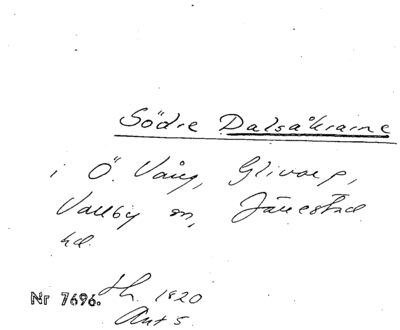 Södre Dalsåkrarne
i Ö. Vång, Glivarp,
Vallby sn, Järrestad
hd.
Nr 7696. Lh. 1820
Akt 5.